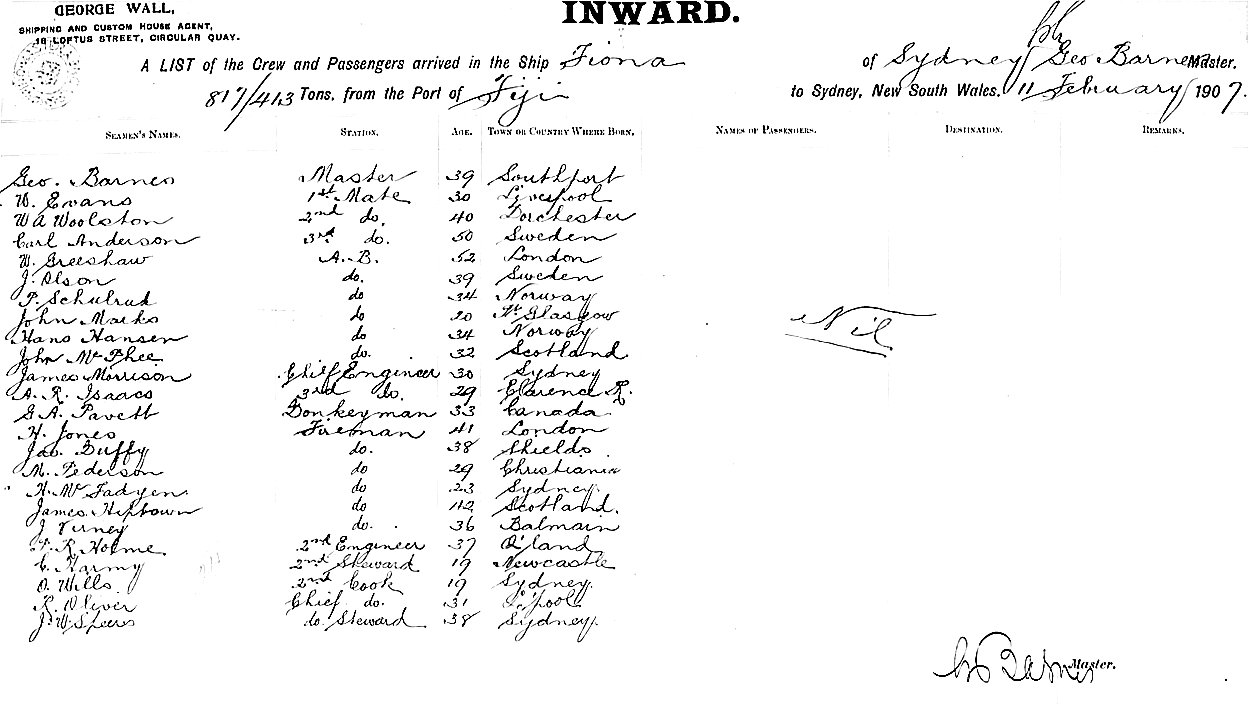 GEORGE WALL,
SHIPPING AND CUSTOM HOUSE AGENT,
16 LOFTUS STREET, CIRCULAR QUAY.
INWARD.
A LIST of the Crew and Passengers arrived in the Ship Fiona of Sydney Geo Barnes Master.
817/413 Tons, from the Port of Fiji to Sydney, New South Wales, 11 February 1907.
SEAMEN'S NAMES. STATION. AGE. TOWN OR COUNTRY WHERE BORN. NAMES OF PASSENGERS. DESTINATION. REMARKS.
Geo. Barnes Master 39 Southport
W. Evans 1st Mate 30 Liverpool
W A Woolston 2nd do. 40 Dorchester
Carl Anderson 3rd do. 50 Sweden
W. Greeshaw A.B. 52 London
J. Olson do. 39 Sweden
do 34 Norway
John Marks do 20 Pt Glasgow
Nil
Hans Hansen do 34 Norway
John McPhee do. 32 Scotland
James Morrison Chief Engineer 30 Sydney
A. R. Isaacs 3rd do. 29 Clarence R.
G A. Pavett Donkeyman 33 Canada
H. Jones Fireman 41 London
Jas. Duffy do. 38 Shields
M. Pederson do 29 Christiania
H. McFadyen do 23 Sydney.
James Hiptown do 42 Scotland.
J Verney do. 36 Balmain
R. Holme 2nd Engineer 37 Q'land
C. Karmy 2nd Steward 19 Newcastle
O. Wills. 2nd Cook 19 Sydney.
R. Oliver Chief do. 31 L'pool
J. W. Speers do. Steward 38 Sydney.
Geo Barnes Master.